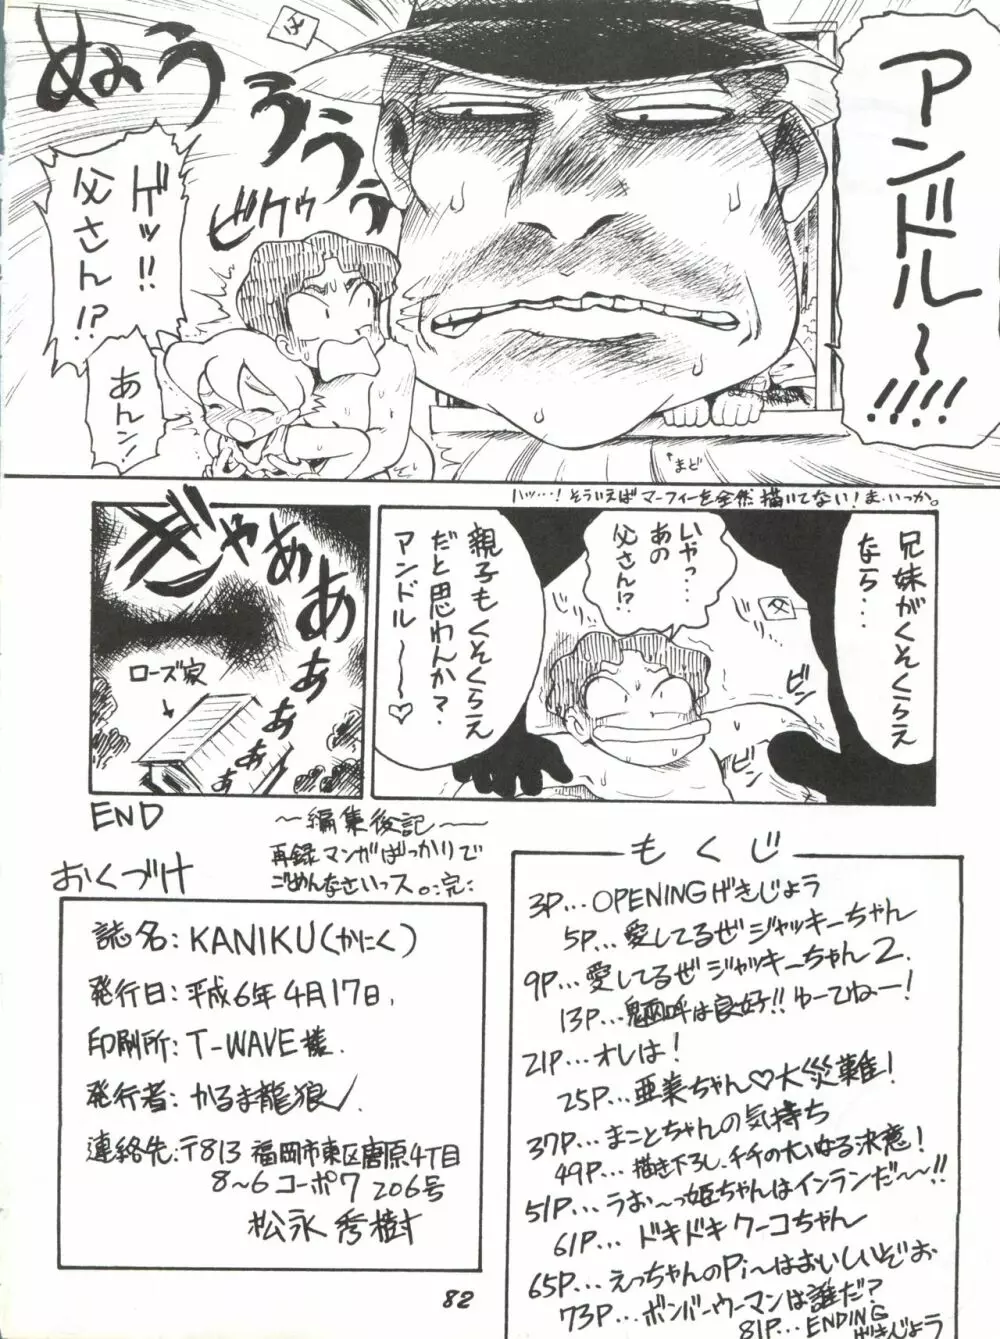 アンドル〜!!!!
父
ぬぉううううう
ビクゥ
ゲッ!!
父さん!?
あんン!
↑まど
ハッ…!そういえばマーフィーを全然描いてない!ま、いっか。
兄妹がくそくらえ
なら…
父
いやっ…
あの
父さん!?
親子もくそくらえ
だと思わんか?
アンドル〜〜♡
ビン
ビン
ぎゃぁぁぁぁぁぁ
ローズ家
END
〜編集後記〜
再録マンガばっかりで
ごめんなさいっス。:完:
おくづけ
誌名:KANIKU(かにく)
発行日:平成6年4月17日.
印刷所:T-WAVE様.
発行者:かるま龍狼
連絡先:〒813 福岡市東区唐原4丁目
8〜6 コーポワ 206号
松永秀樹
もくじ
3P…OPENINGげきじょう
5P…愛してるぜジャッキーちゃん
9P…愛してるぜジャッキーちゃん2.
13P…魍呼は良好!!ゆーてねー!
21P…オレは!
25P…亜美ちゃん♡大災難!
37P…まことちゃんの気持ち
49P…描き下ろし、チチの大いなる決意!
51P…うお〜っ姫ちゃんはインランだ〜〜!!
61P…ドキドキクーコちゃん
65P…えっちゃんのPi〜はおいしいぞぉ
73P…ボンバーウーマンは誰だ?
81P…ENDING
げきじょう
82